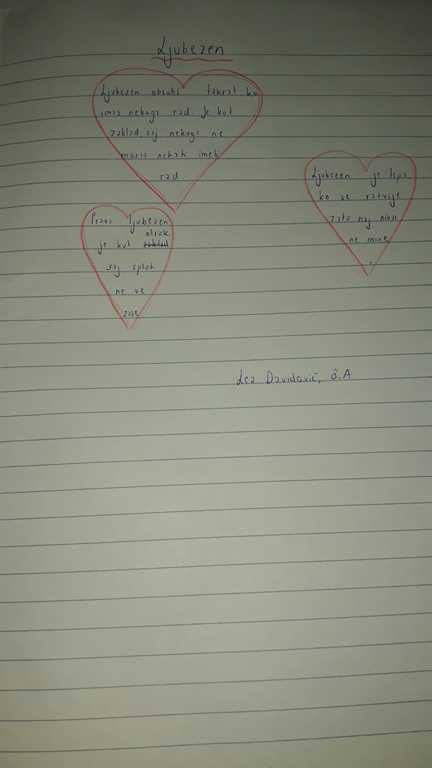 Ljubezen
Ljubezen obstaja takrat ko
imaš nekoga rad. Je kot
zaklad, saj nekoga ne
moreš nehat imeti
rad
Ljubezen je lepa
ko se razvije
zato naj nikoli
ne mine
Prava ljubezen
je kot otrok
saj sploh
ne ve
zase
Lea Davidović, 8.A